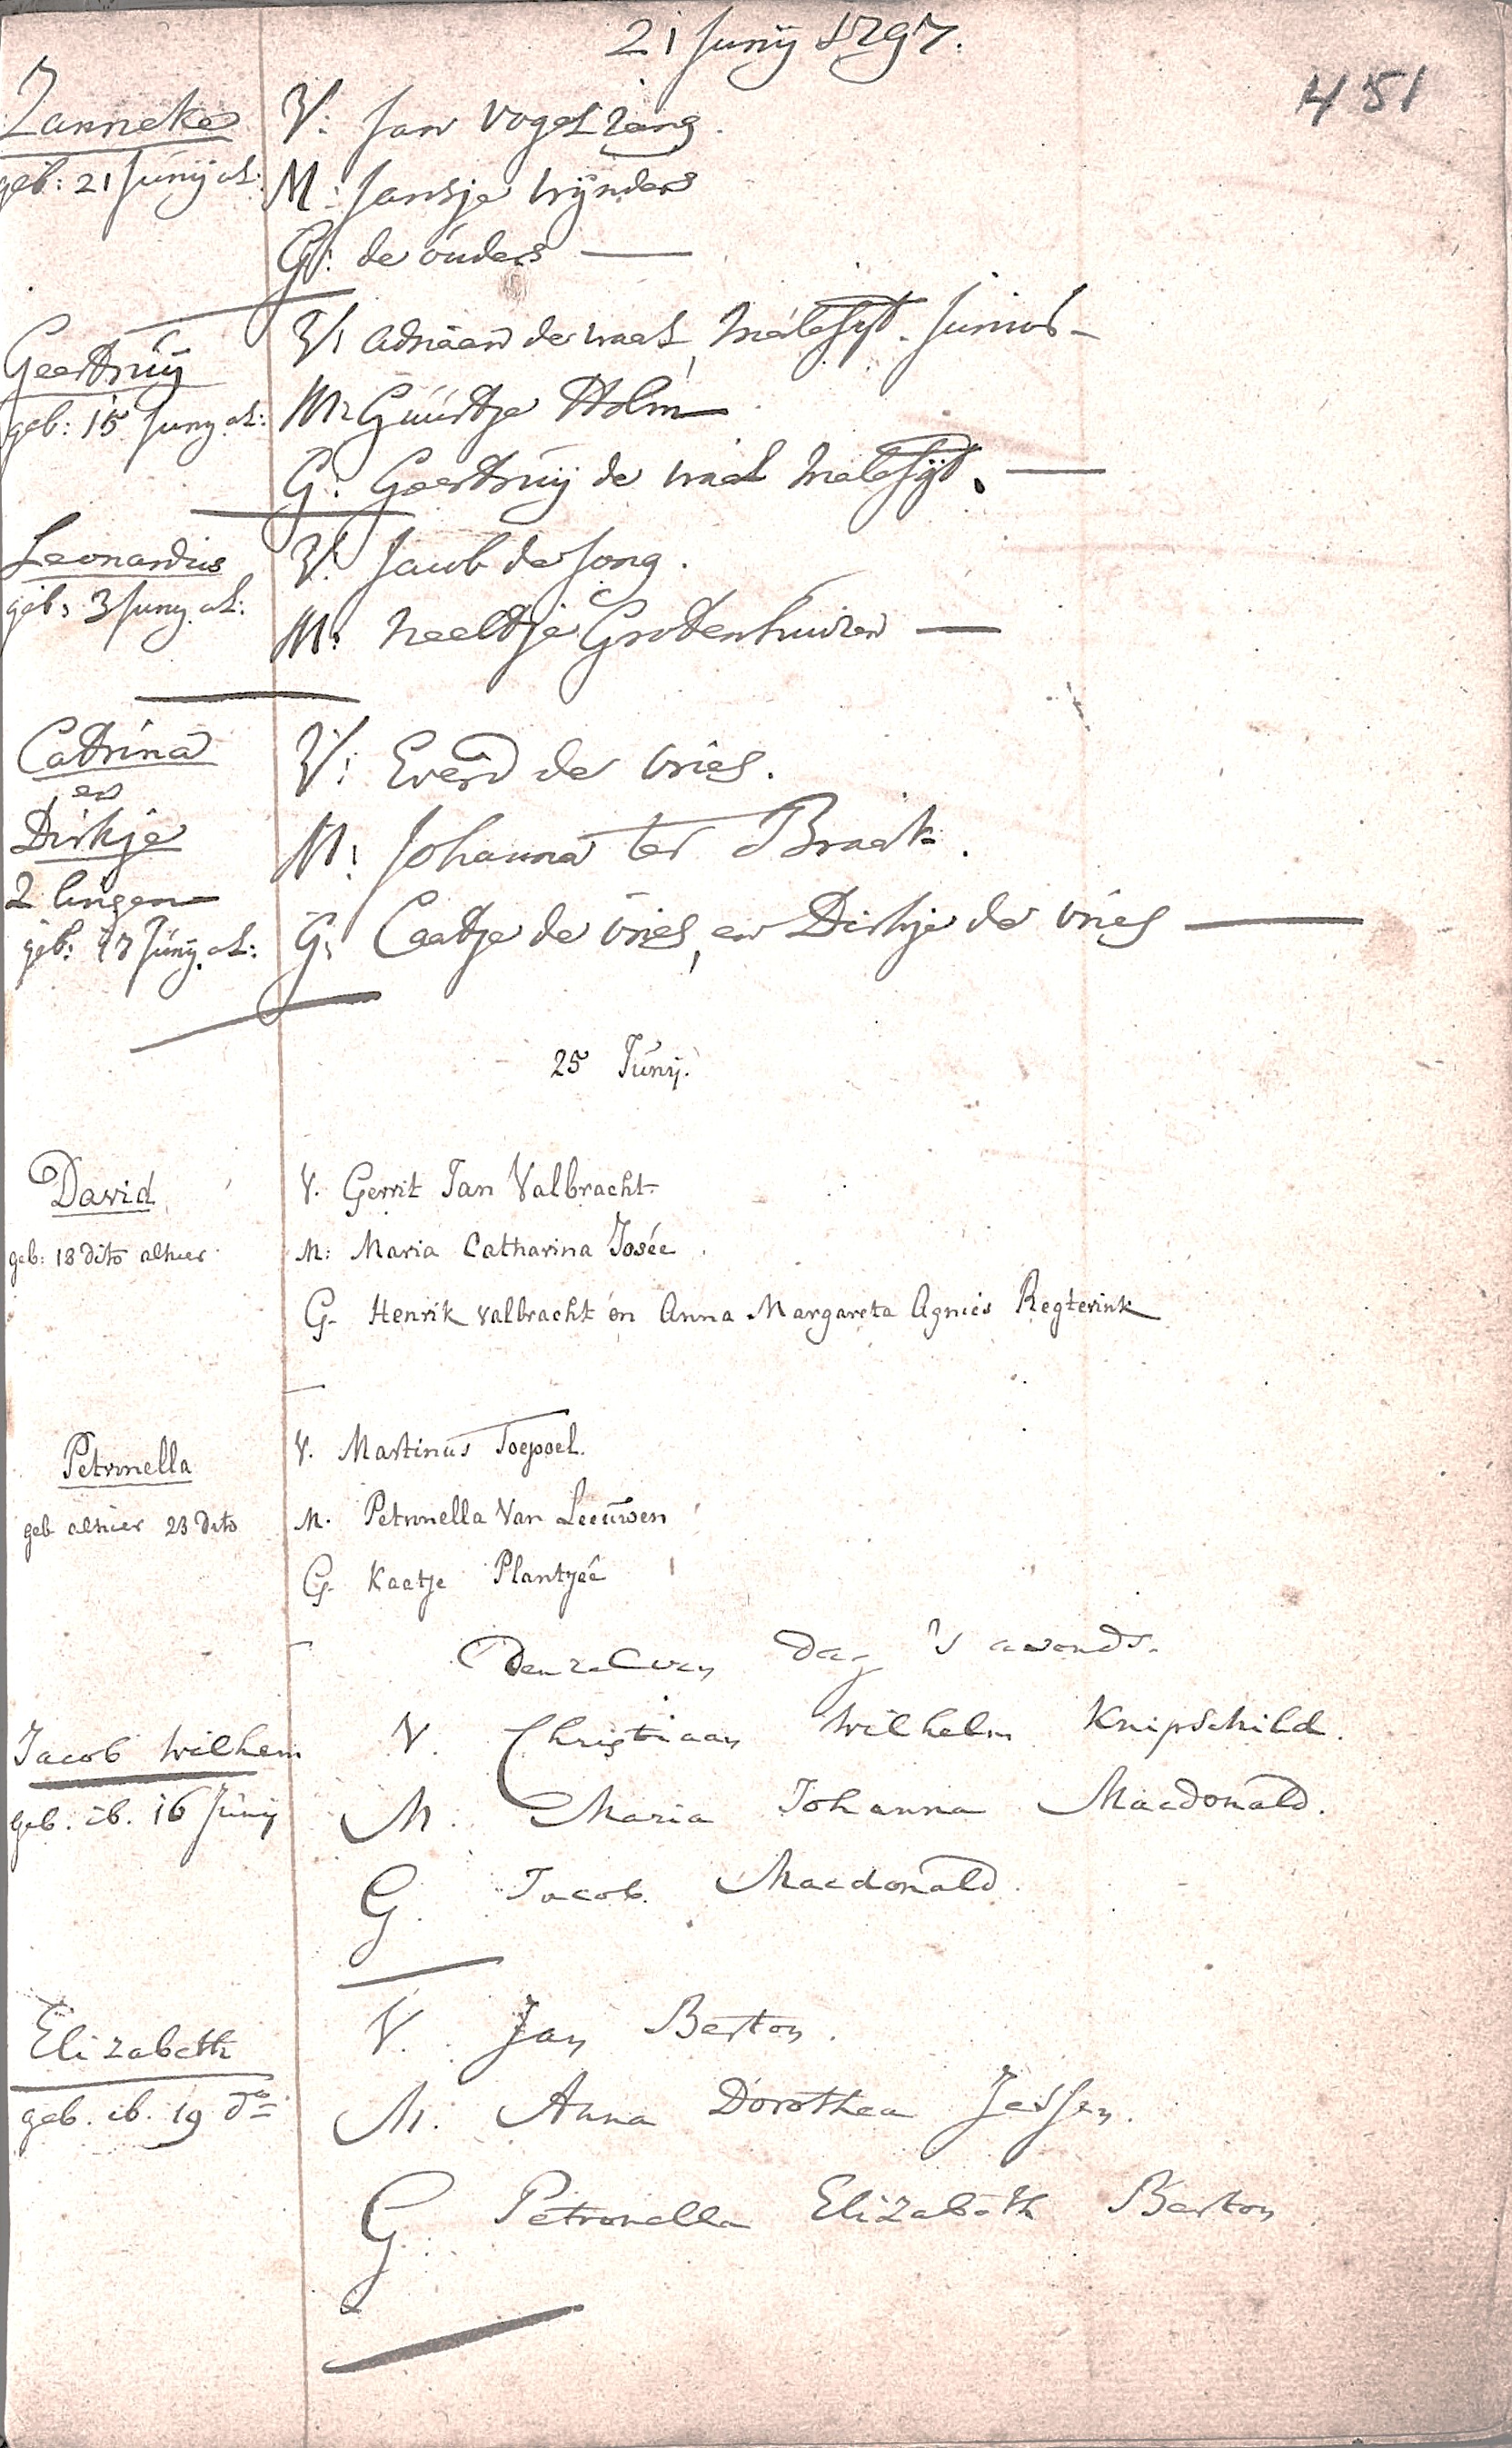 21 Junij 1797.
451
Janneke
geb: 21 Junij al:
V: Jan Vogelzang.
M: Jansje Wijnders
G: de ouders
Geertruij
geb: 15 Juny al:
V: Adriaan de Waal, Malefijt. Junior
M: Guurtje Holm
G: Geertruij de Waal Malefijt.
Leonardus
geb: 3 Juny al:
V: Jacob de Jong.
M: Neeltje Grotenhuizen
Catrina
en
Dirkje
2 lingen
geb: 17 Juny al:
V: Everd de Vries.
M: Johanna ter Braak.
G: Caatje de Vries, en Dirkje de Vries
25 Junij.
David
geb: 18 dito alhier
V. Gerrit Jan Valbracht.
M: Maria Catharina Josée
G. Henrik Valbracht en Anna Margareta Agnies Regterink
Petronella
geb alhier 23 dito
V. Martinus Toepoel.
M. Petronella Van Leeuwen
G. Kaatje Plantjeé
Denzelven dag 's avonds.
Jacob Wilhem
geb. ib. 16 Junij
V. Christiaan Wilhelm Knipschild.
M. Maria Johanna Macdonald.
G. Jacob Macdonald.
Elizabeth
geb. ib. 19 do
V. Jan Berton.
M. Anna Dorothea Jessen.
G Petronella Elizabeth Berton